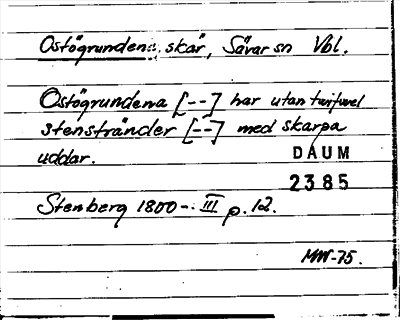 Ostögrundena, skär, Sävar sn Vbl.
Ostögrundena [--] har utan tvifvel
stenstränder [--] med skarpa
uddar.
DAUM
2385
Stenberg 1800-: III p. 12.
MW-75.